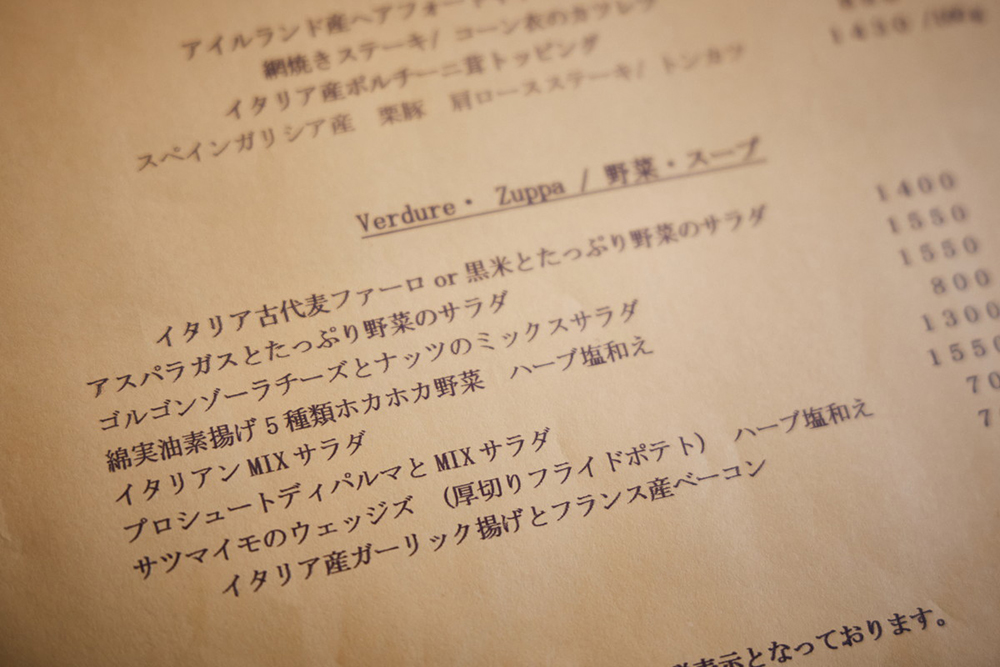 アイルランド産ヘアフォード
網焼きステーキ/ コーン衣のカツレツ
イタリア産ポルチーニ茸トッピング
スペインガリシア産 栗豚 肩ロースステーキ/ トンカツ 1430/100g
Verdure・ Zuppa / 野菜・スープ
イタリア古代麦ファーロ or 黒米とたっぷり野菜のサラダ 1400
アスパラガスとたっぷり野菜のサラダ 1550
ゴルゴンゾーラチーズとナッツのミックスサラダ 1550
綿実油素揚げ5種類ホカホカ野菜 ハーブ塩和え 800
イタリアン MIX サラダ 1300
プロシュートディパルマと MIX サラダ 1550
サツマイモのウェッジズ (厚切りフライドポテト) ハーブ塩和え 70
イタリア産ガーリック揚げとフランス産ベーコン 7
表示となっております。